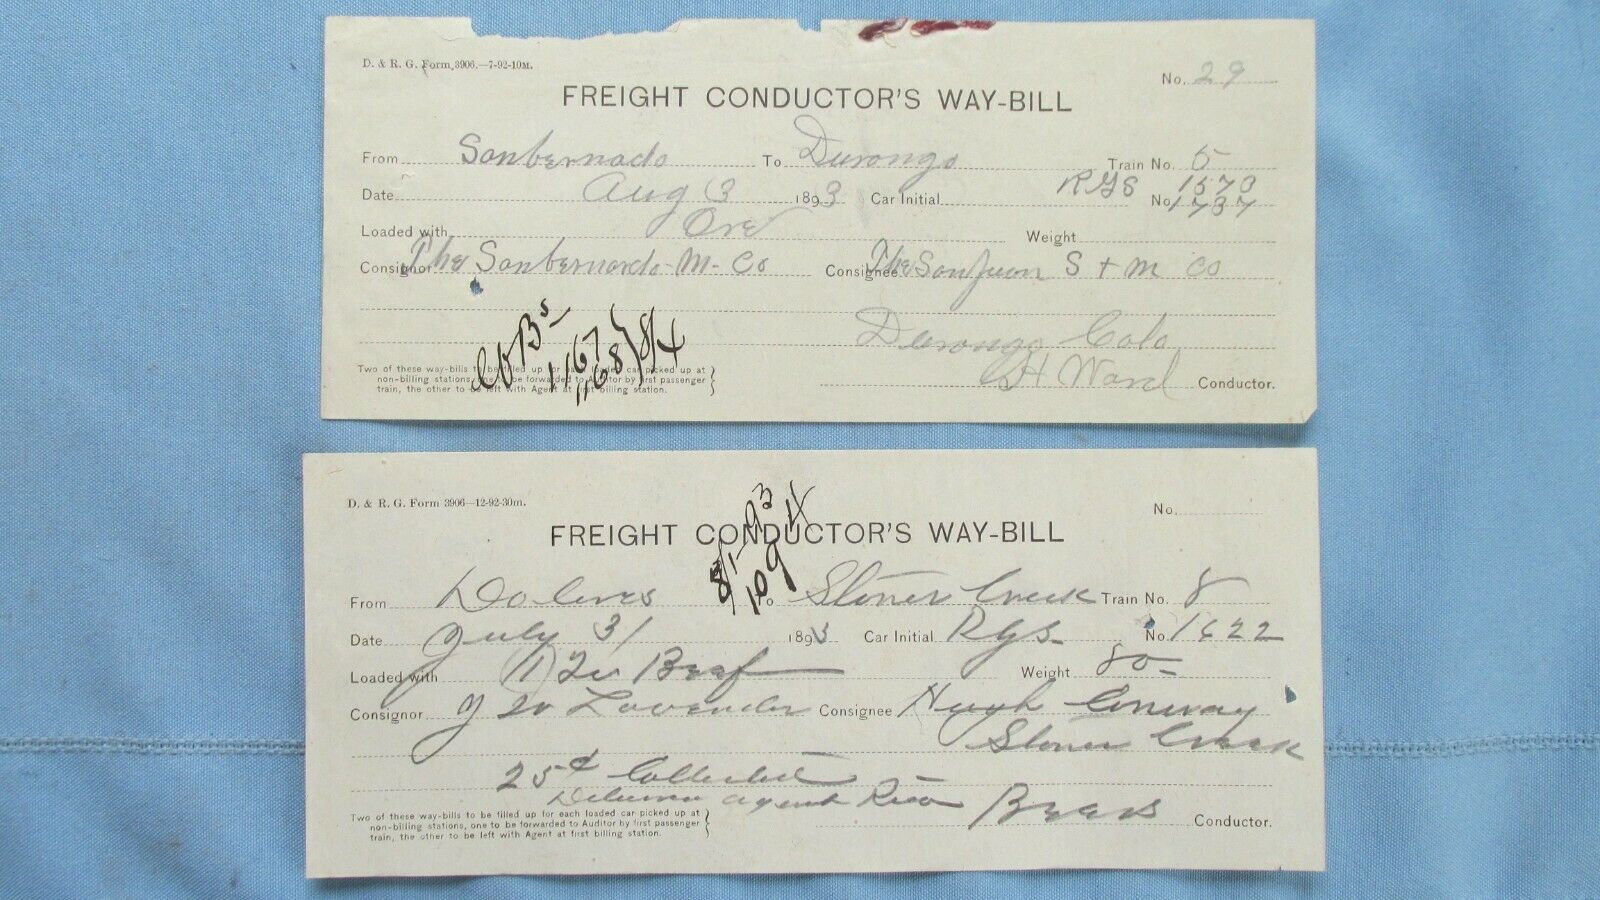 D. & R. G. Form 3906.—7-92-10M.
No. 29
FREIGHT CONDUCTOR'S WAY-BILL
From Sanbernado To Durongo Train No. 5
Date Aug 3 1893 Car Initial RGS No. 1573
1737
Loaded with Ore Weight
Consignor The Sanbernardo M- Co Consignee The San Juan S + M Co
Durongo Colo
Co Bs 1167 1168 } 8/4
Two of these way-bills to be filled up for each loaded car picked up at
non-billing stations, one to be forwarded to Auditor by first passenger
train, the other to be left with Agent at first billing station.
H Ward Conductor.
D. & R. G. Form 3906—12-92-30m.
No.
8/1-93
109
FREIGHT CONDUCTOR'S WAY-BILL
From Dolores To Stoner Creek Train No. 8
Date July 31 1893 Car Initial Rgs- No. 1622
Loaded with Beef Weight 80-
Consignor Lavender Consignee Hugh Conway
Stoner Creek
25¢ Collected
agent Rico
Two of these way-bills to be filled up for each loaded car picked up at
non-billing stations, one to be forwarded to Auditor by first passenger
train, the other to be left with Agent at first billing station.
Conductor.